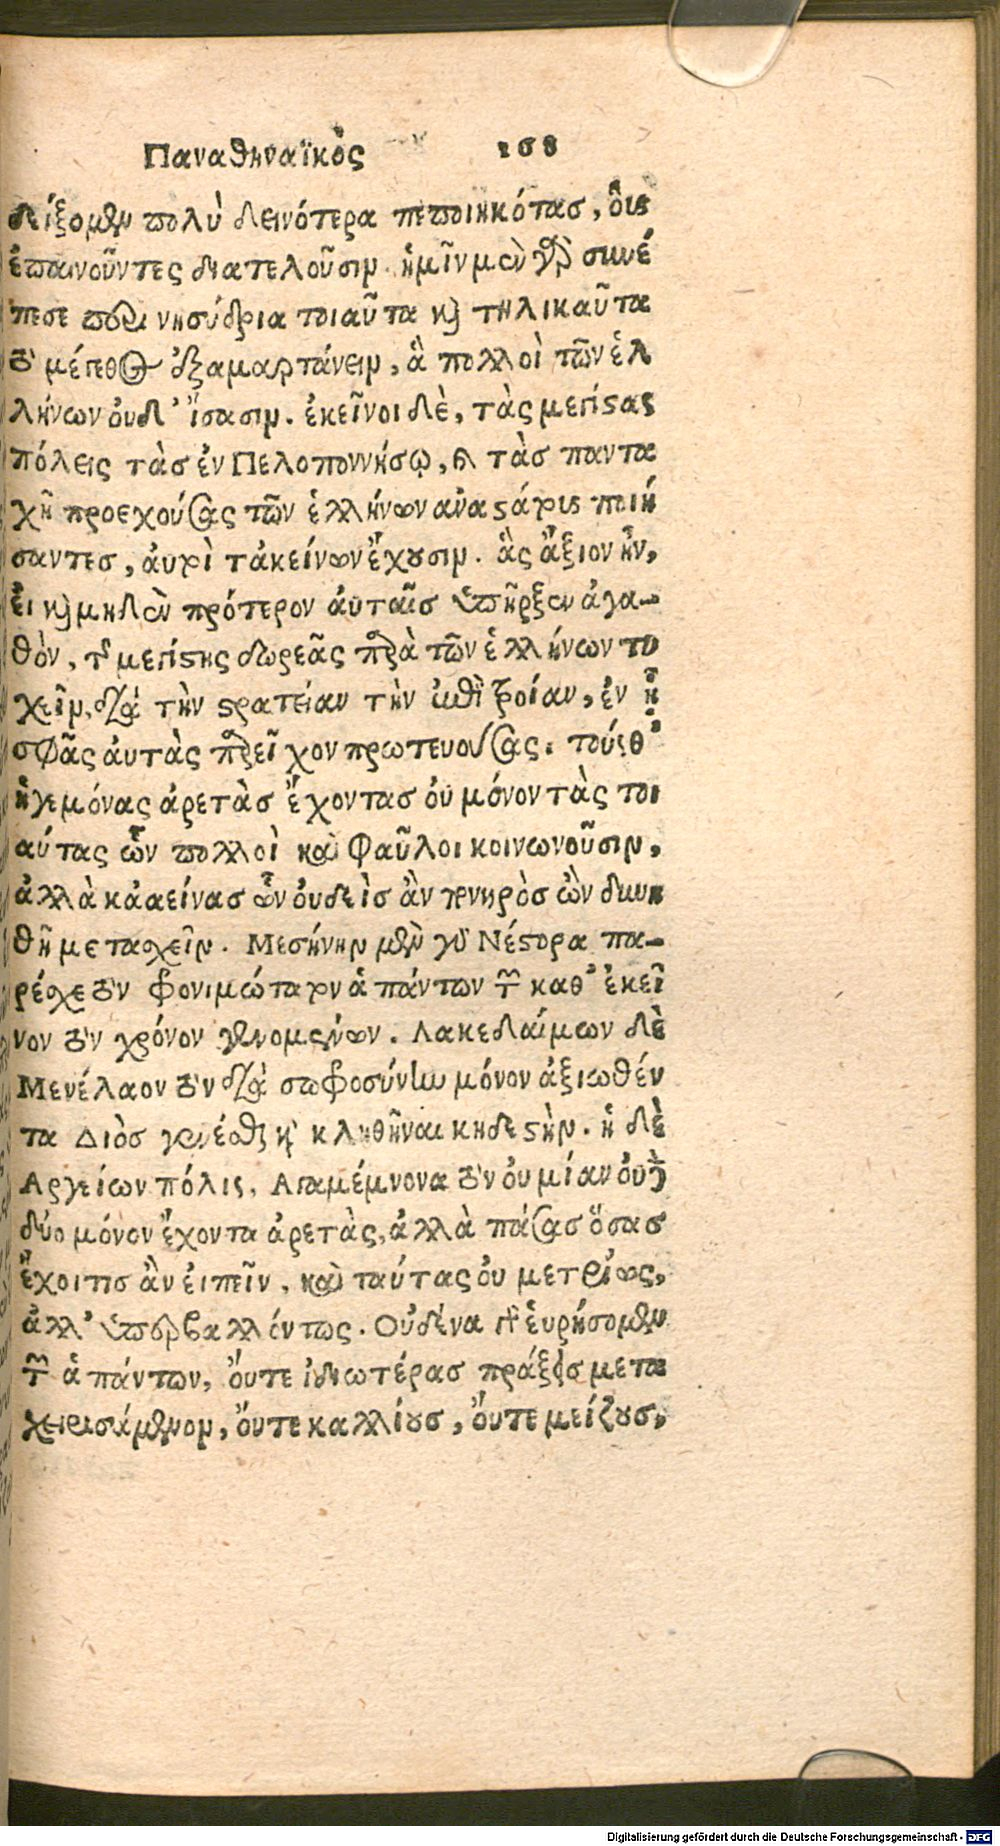 Παναθηναϊκὸς 168
δείξομεν πολὺ δεινότερα πεποιηκότασ, ὃυς
ἐπαινοῦντες διατελοῦσιν. ἡμῖν μὲν γὰρ συνέ
πεσε περὶ νησύδρια τοιαῦτα καὶ τηλικαῦτα
τὸ μέγεθος ἐξαμαρτάνειν, ἃ πολλοὶ τῶν ἑλ
λήνων ὀυδ' ἴσασιν. ἐκεῖνοι δὲ, τὰς μεγίστας
πόλεις τὰσ ἐν Πελοποννήσῳ, καὶ τὰσ παντα
χῆ προεχούσας τῶν ἑλλήνων ἀναστάτους ποιή
σαντεσ, ἀυτοὶ τἀκείνων ἔχουσιν. ἃς ἄξιον ἦν,
ἐι καὶ μηδὲν πρότερον ἀυταῖσ ὑπῆρξεν ἀγα-
θὸν, τῆς μεγίστης δωρεᾶς παρὰ τῶν ἑλλήνων τυ
χεῖν, διὰ τὴν στρατείαν τὴν ἐπὶ τροίαν, ἐν ᾗ
σφᾶς ἀυτὰς παρεῖχον πρωτευούσας. τούς θ'
ἡγεμόνας ἀρετὰσ ἔχοντασ ὀυ μόνον τὰς τοι
αύτας ὧν πολλοὶ καὶ φαῦλοι κοινωνοῦσιν,
ἀλλὰ κἀκείνασ ὧν ὀυδεὶσ ἂν πονηρὸσ ὢν δυνη
θῆ μετασχεῖν. Μεσήνην μὲν γὰρ Νέστορα πα-
ρέσχε τὸν φρονιμώτατον ἁπάντων τῶν κατ' ἐκεῖ
νον τὸν χρόνον γενομένων. Λακεδαίμων δὲ
Μενέλαον τὸν διὰ σωφροσύνην μόνον ἀξιωθέν
τα Διὸσ γενέσθαι καὶ κληθῆναι κηδεστὴν. ἡ δὲ
Αργείων πόλις, Αγαμέμνονα τὸν ὀυ μίαν ὀυδὲ
δύο μόνον ἔχοντα ἀρετὰς, ἀλλὰ πάσασ ὅσασ
ἔχοι τισ ἂν ἐιπεῖν, καὶ ταύτας ὀυ μετρίως,
ἀλλ' ὑπερβαλλόντως. Ουδένα γὰρ ἑυρήσομεν
τῶν ἁπάντων, ὄυτε ἰδιωτέρασ πράξεισ μετα
χειρισάμενον, ὄυτε καλλίουσ, ὄυτε μείζουσ,
Digitalisierung gefördert durch die Deutsche Forschungsgemeinschaft - DFG